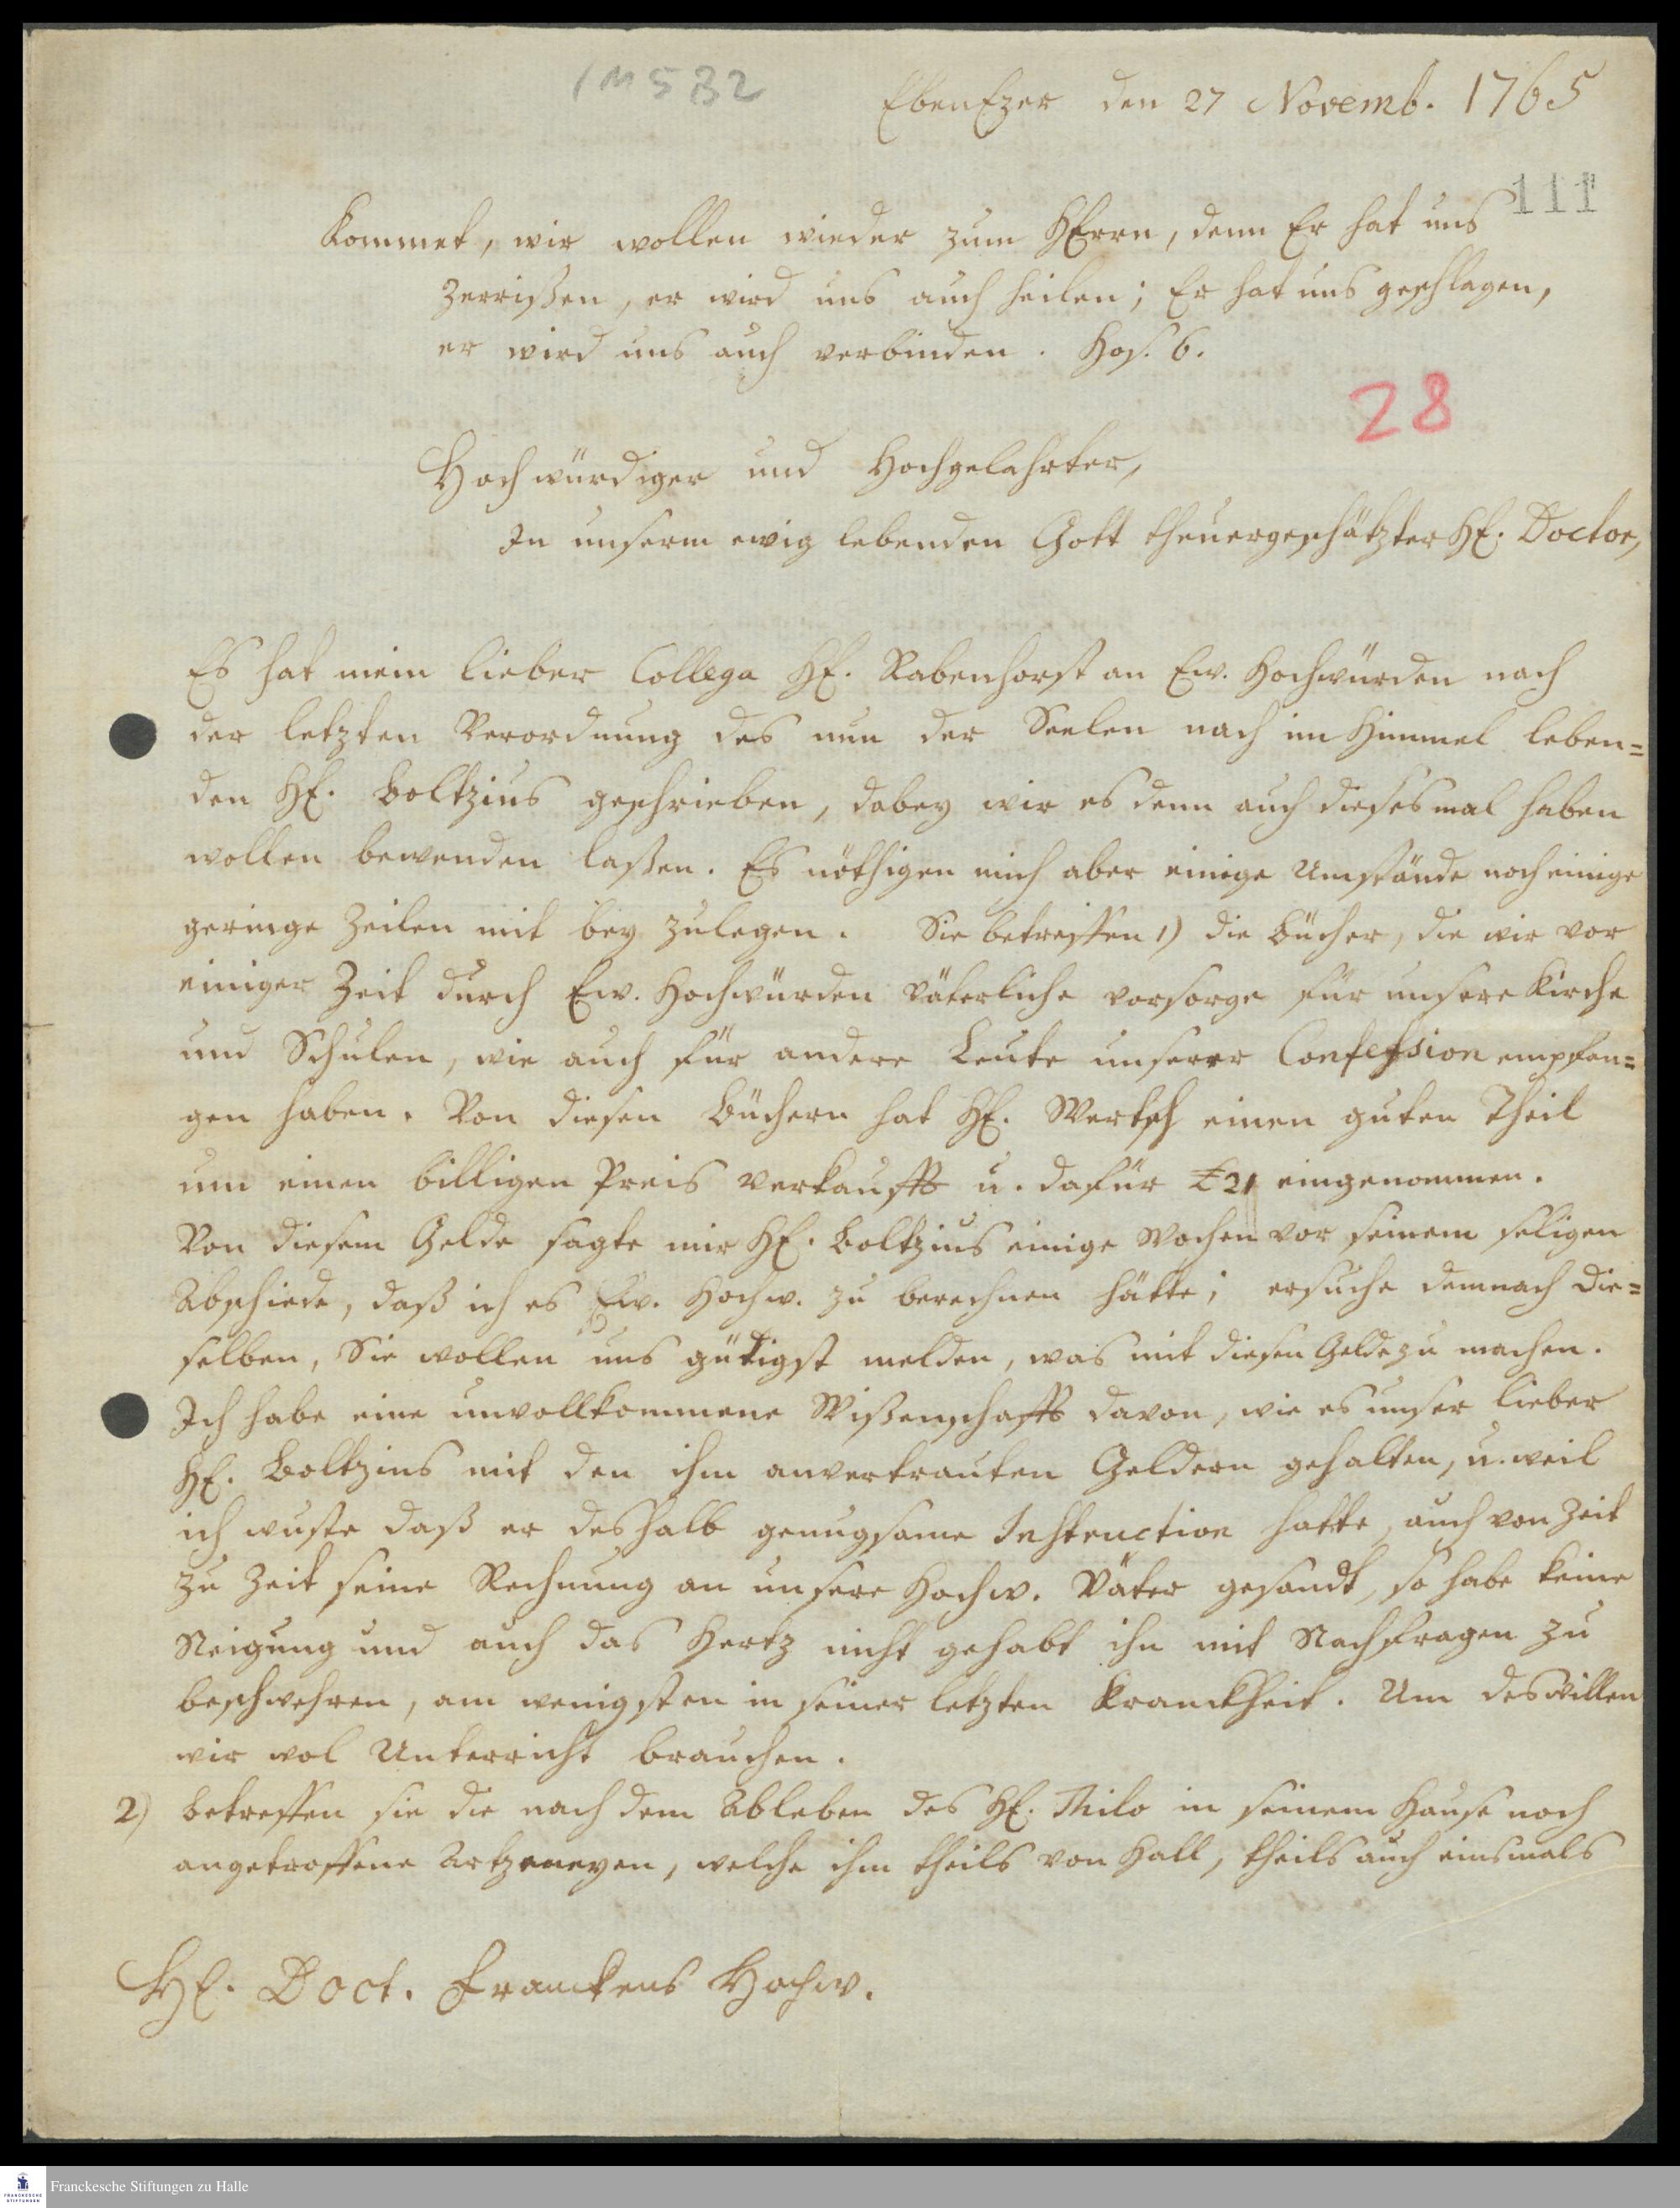 1M 5 B2
EbenEzer den 27 Novemb. 1765
111
Kommet, wir wollen wieder zum HErrn, denn Er hat uns
zerrißen, er wird uns auch heilen; Er hat uns geschlagen,
er wird uns auch verbinden. Hos. 6.
28
Hochwürdiger und Hochgelahrter,
In unserm ewig lebenden Gott theuergeschätzter H. Doctor,
Es hat mein lieber Collega H. Rabenhorst an Ew. Hochwürden nach
der letzten Verordnung des nun der Seelen nach im Himmel leben=
den H. Boltzius geschrieben, dabey wir es denn auch dieses mal haben
wollen bewenden laßen. Es nöthigen mich aber einige Umstände noch einige
geringe Zeilen mit bey zulegen. Sie betreffen 1) die Bücher, die wir vor
einiger Zeit durch Ew. Hochwürden väterliche vorsorge für unsere Kirche
und Schulen, wie auch für andere Leute unserer Confession empfan=
gen haben. Von diesen Büchern hat H. Wertsch einen guten Theil
um einen billigen Preis verkaufft u. dafür £ 21 eingenommen.
Von diesem Gelde sagte mir H. Boltzius einige Wochen vor seinem seligen
Abschiede, daß ich es Ew. Hochw. zu berechnen hätte; ersuche demnach die=
selben, Sie wollen uns gütigst melden, was mit diesen Gelde zu machen.
Ich habe eine unvollkommene Wißenschafft davon, wie es unser lieber
H. Boltzius mit den ihm anvertrauten Geldern gehalten, u. weil
ich wuste daß er deshalb genugsame Instruction hatte, auch von Zeit
zu Zeit seine Rechnung an unsere Hochw. Väter gesandt, so habe keine
Neigung und auch das Hertz nicht gehabt ihn mit Nachfragen zu
beschwehren, am wenigsten in seiner letzten Kranckheit. Um deswillen
wir wol Unterricht brauchen.
2) betreffen sie die nach dem Ableben des H. Thilo in seinem Hause noch
angetroffene Artzeneyen, welche ihm theils von Hall, theils auch einsmals
H. Doct. Franckens Hochw.
FRANCKESCHE STIFTUNGEN
Franckesche Stiftungen zu Halle